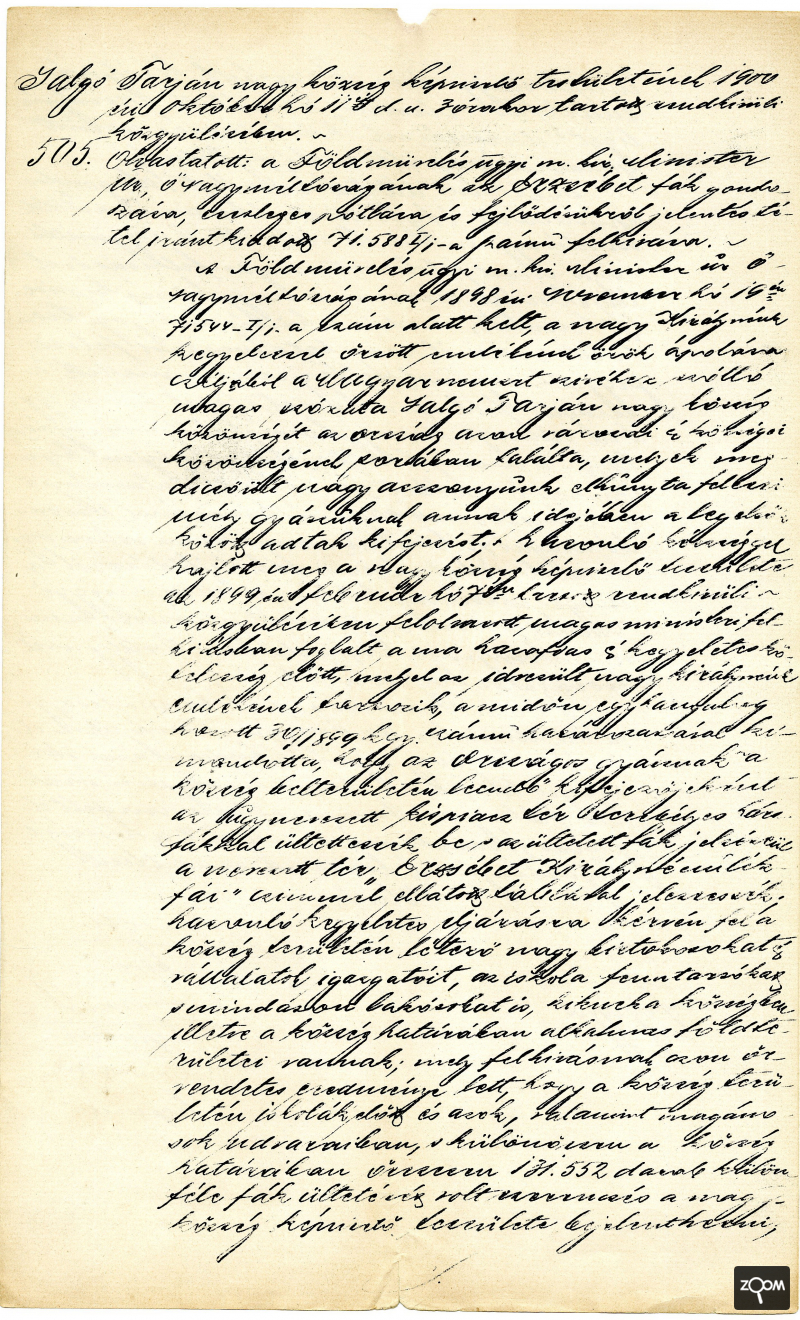 Salgó Tarján nagy község képviselő testületének 1900
évi Október hó 11én d. u. 3 órakor tartott rendkivüli
közgyülésében. ~
505. Olvastatott: a Földmüvelésügyi m. kir. Minister
Ur, Ő nagyméltóságának az Erzsébet fák gondo-
zása, esetleges pótlása és fejlődésükről jelentés té-
tel iránt kiadott 71.588 I/1-a számú felhivása. ~
A Földmüvelésügyi m. kir. Minister úr Ő
nagyméltóságának 1898 évi November hó 19én
71544-I/1. a szám alatt kelt, a nagy Királynénk
kegyelettel őrzött emlékének örök ápolása
czéljából a Magyar nemzet szivéhez szólló
magas szózata Salgó Tarján nagy község
közönségét az ország azon városai és községei
közönségének sorában találta, melyek meg-
dicsőült nagyasszonyunk elhunyta feletti
mély gyászuknak annak idejében a legelsők
között adtak kifejezést. hasonló készséggel
hajlott meg a nagy község képviselő testülete
az 1899 évi február hó 7én rendkivüli ~
közgyülésében felolvasott, magas ministeri fel-
hivásban foglalt ama hazafias és kegyeletes kö-
telesség előtt, melyel az idvezült nagy királynénk
emlékének tartozik, a midőn egyhangulag
hozott 30/1899 kgy. számú határozatával ki-
mondotta, hogy az országos gyásznak a
község belterületén leendő kifejezőjeként
az úgynevezett kispiacz tér szegélyes hárs-
fákkal ültettessék be, s az ültetett fák jelzésére
a nevezett tér, Erzsébet Királyné emlék-
fái" czimmel ellátott táblával jeleztessék.
hasonló kegyeletes eljárásra kérvén fel a
község területén létező nagy birtokosokat és
vállalatok igazgatóit, az iskola fenntartókat
s mindazon lakósokat is, kiknek a községben
illetve a község határában alkalmas földte-
rületei vannak; mely felhivásnak azon ör-
vendetes eredménye lett, hogy a község terü-
letén iskolák előtt és azok, valamint magáno-
sok udvaraiban, s különösen a község
határában összesen 131.552 darab külön-
féle fák ültetését volt szerencsés a nagy-
község képviselő testülete bejelenthetni,
ZOOM